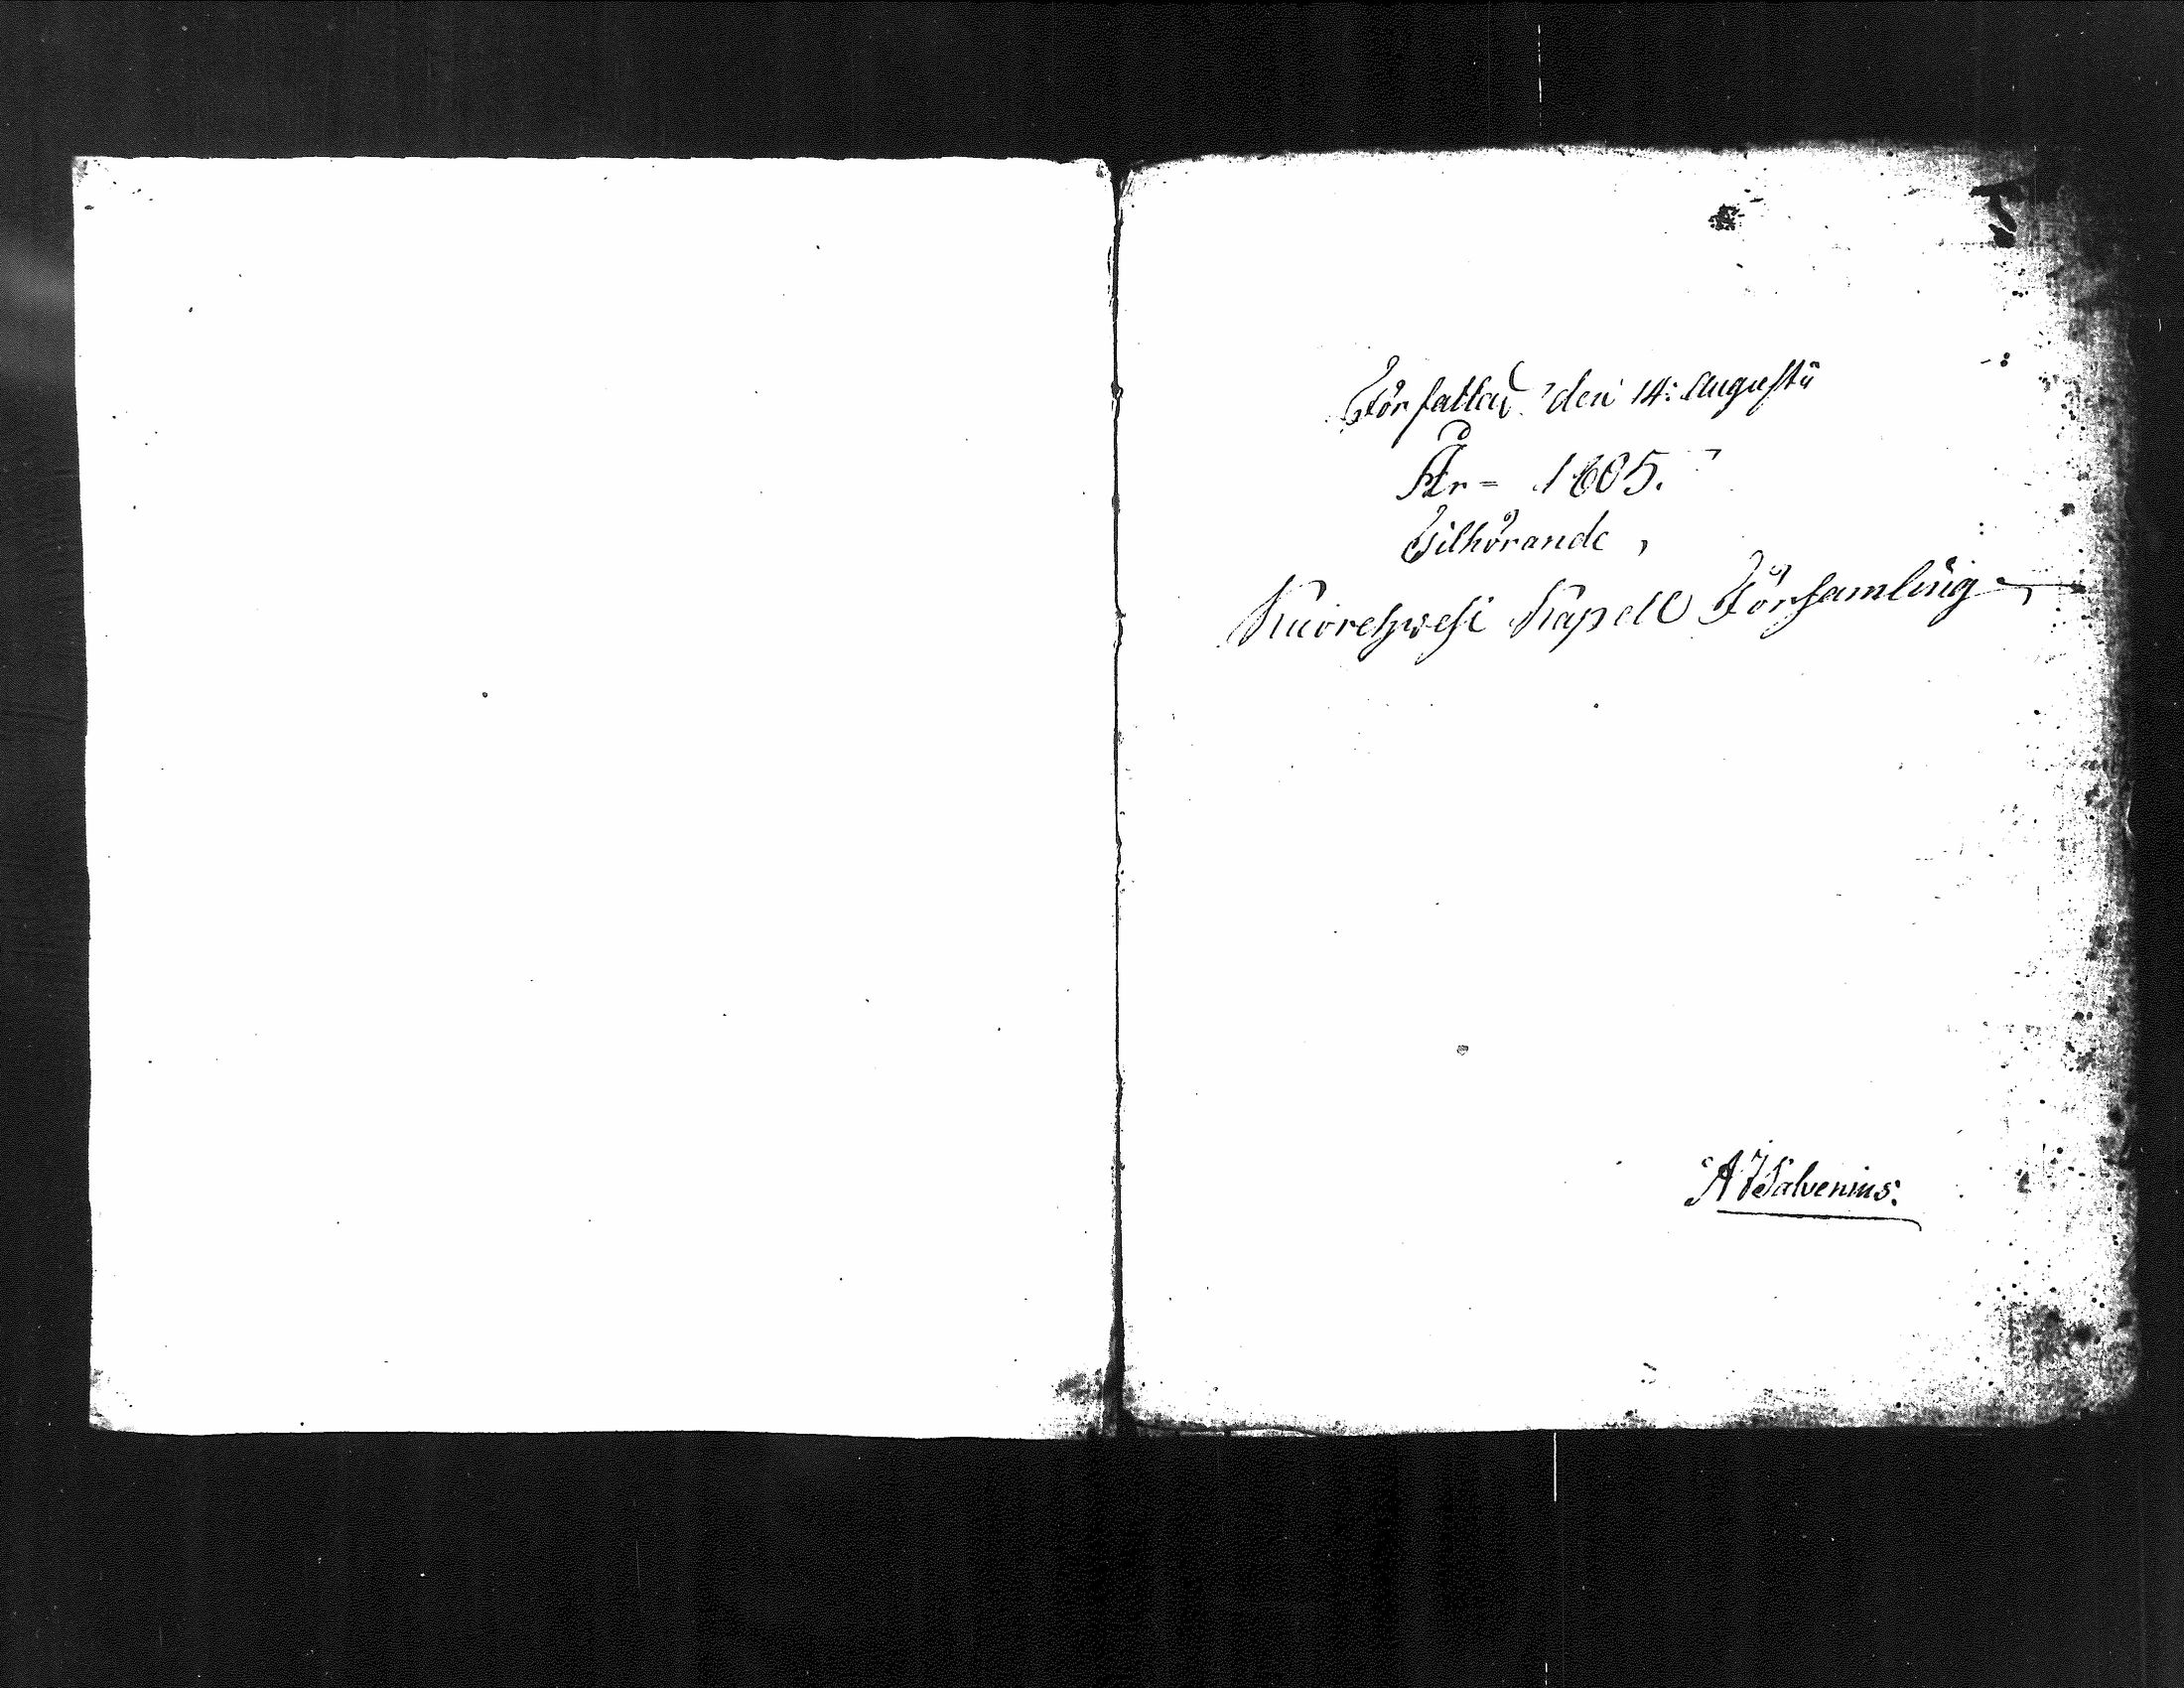 Författad den 14: Augustii
År = 1805.
Tilhörande,
Kuorehwesi Kapell Församling
A Salvenius: